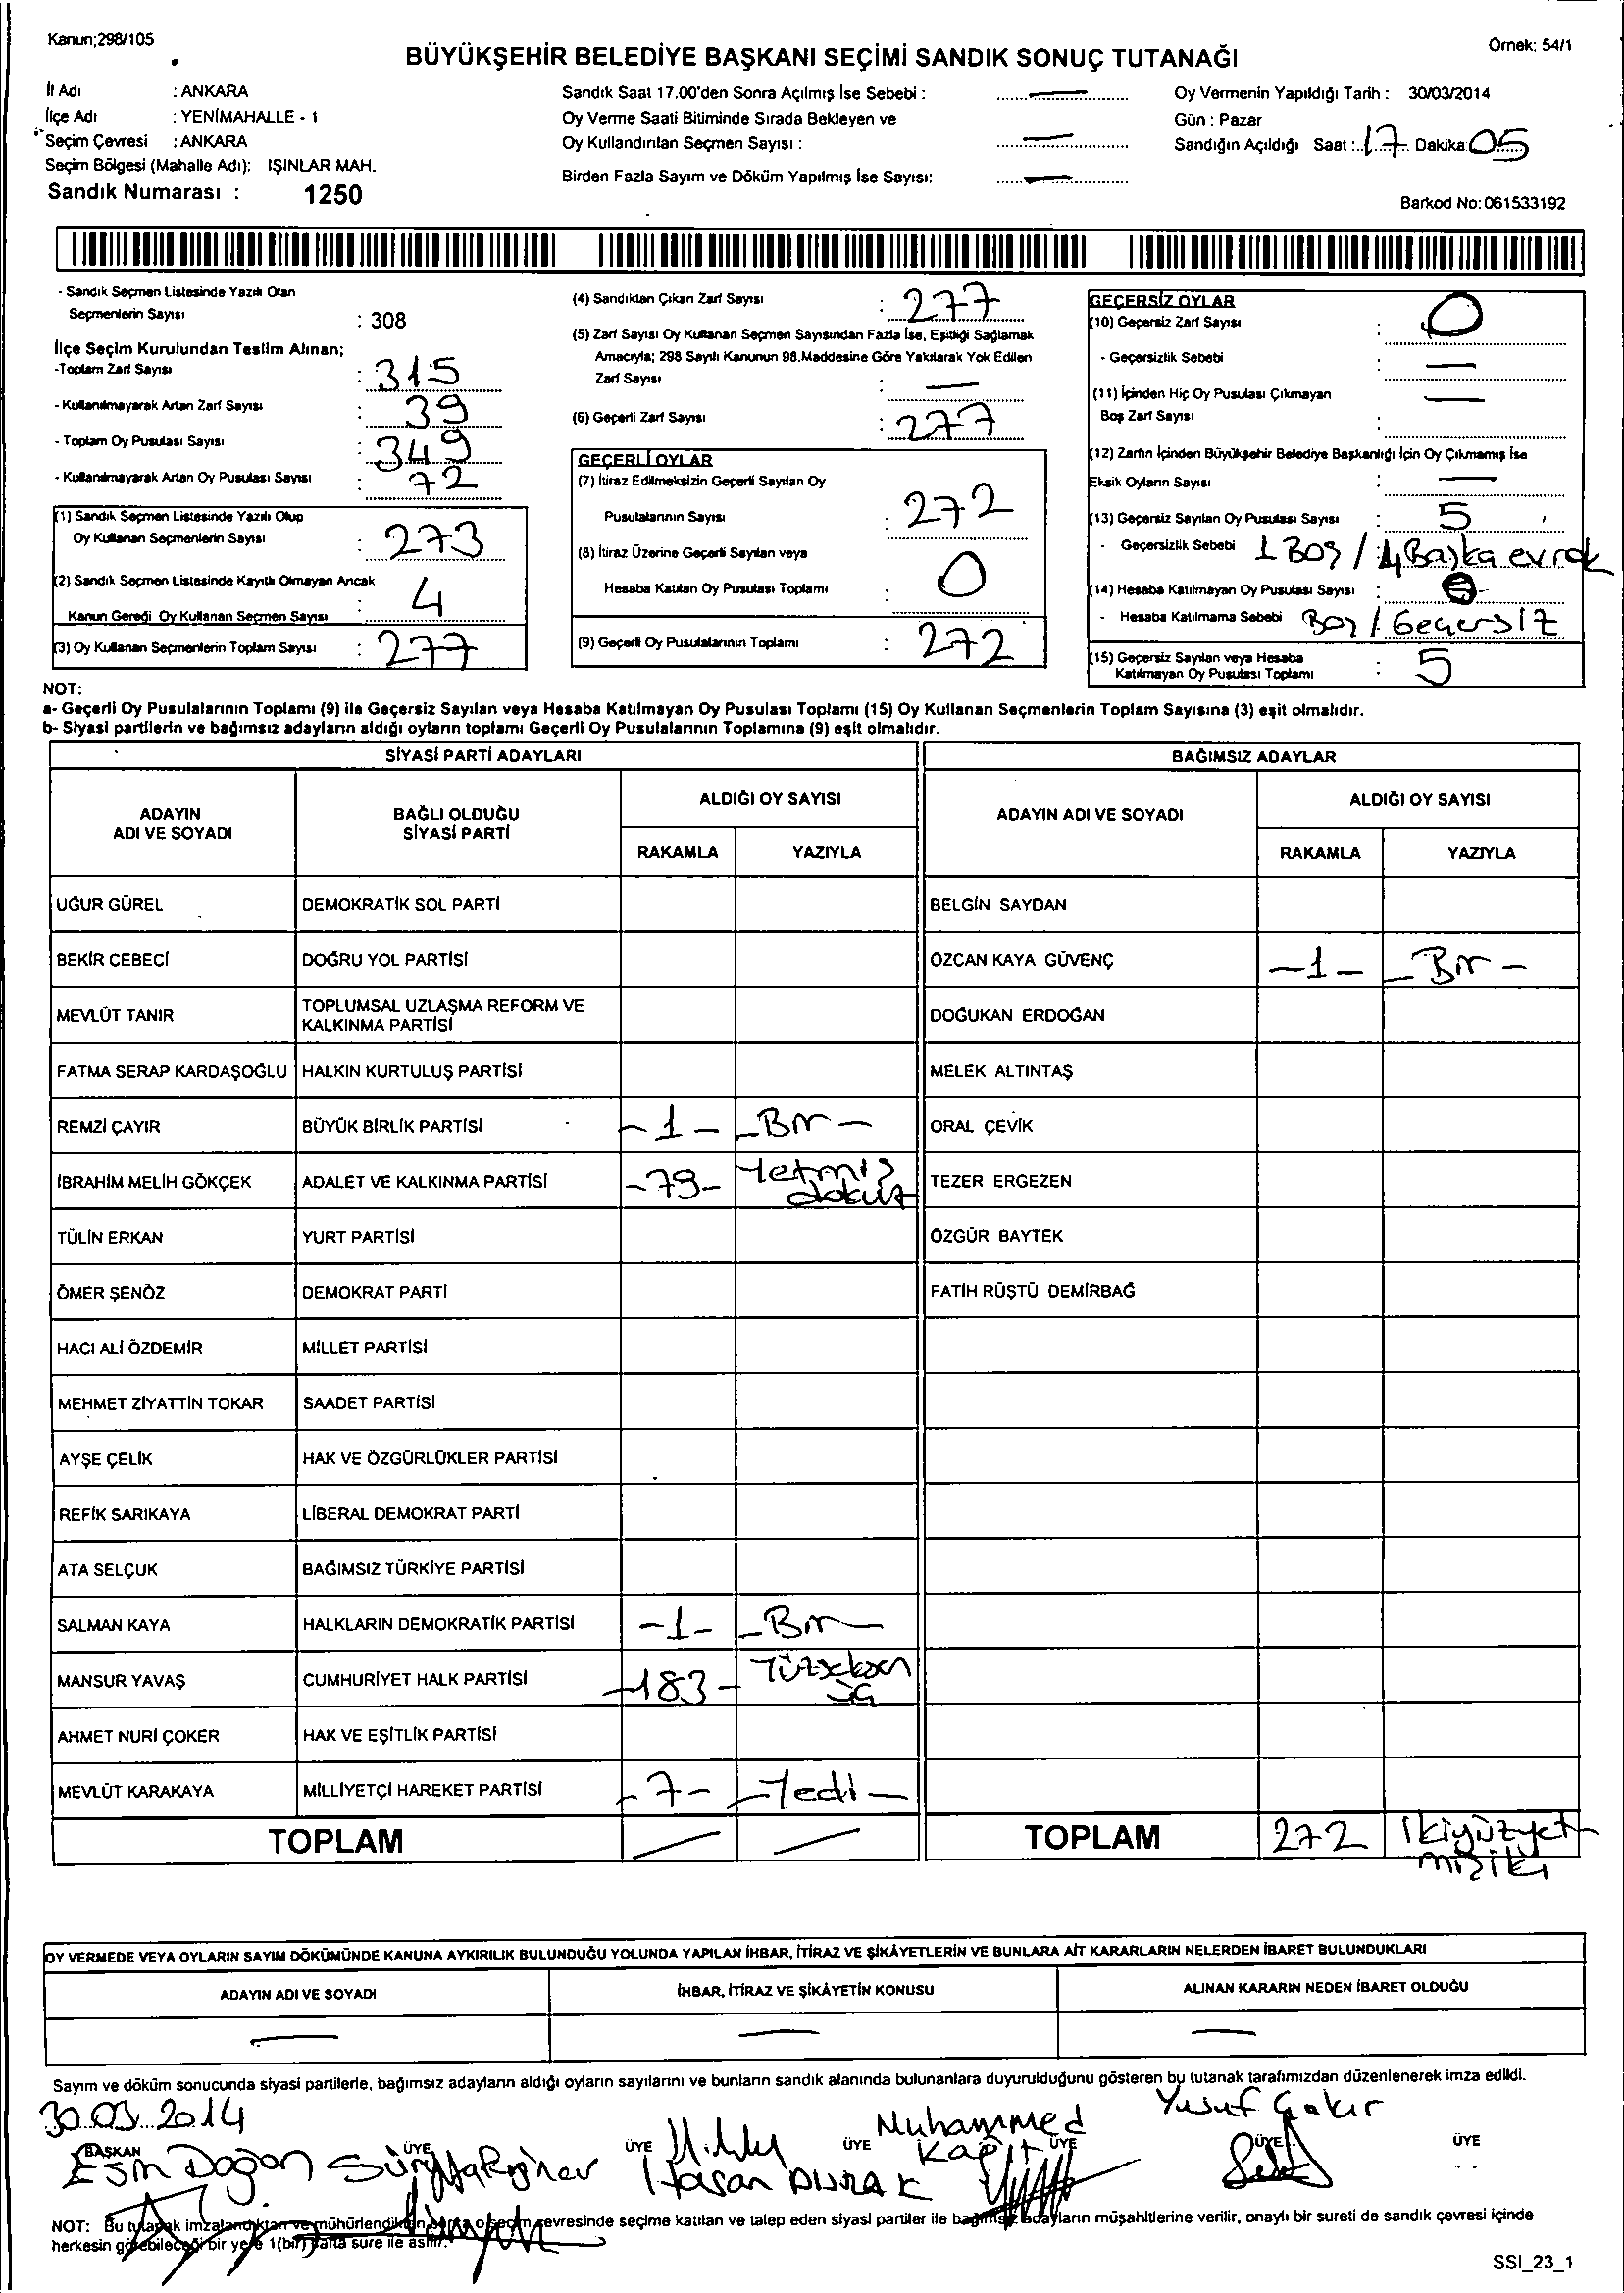 Kanun;298/105
Örnek: 54/1
BÜYÜKŞEHİR BELEDİYE BAŞKANI SEÇİMİ SANDIK SONUÇ TUTANAĞI
İl Adı : ANKARA
İlçe Adı : YENİMAHALLE - 1
Seçim Çevresi : ANKARA
Seçim Bölgesi (Mahalle Adı): IŞINLAR MAH.
Sandık Numarası : 1250
Sandık Saat 17.00'den Sonra Açılmış İse Sebebi : —
Oy Verme Saati Bitiminde Sırada Bekleyen ve
Oy Kullandırılan Seçmen Sayısı : —
Birden Fazla Sayım ve Döküm Yapılmış İse Sayısı: —
Oy Vermenin Yapıldığı Tarih : 30/03/2014
Gün : Pazar
Sandığın Açıldığı Saat : 17 Dakika: 05
Barkod No: 061533192
- Sandık Seçmen Listesinde Yazılı Olan
Seçmenlerin Sayısı : 308
İlçe Seçim Kurulundan Teslim Alınan;
-Toplam Zarf Sayısı : 315
- Kullanılmayarak Artan Zarf Sayısı : 39
- Toplam Oy Pusulası Sayısı : 349
- Kullanılmayarak Artan Oy Pusulası Sayısı : 72
(1) Sandık Seçmen Listesinde Yazılı Olup
Oy Kullanan Seçmenlerin Sayısı : 273
(2) Sandık Seçmen Listesinde Kayıtlı Olmayan Ancak
Kanun Gereği Oy Kullanan Seçmen Sayısı : 4
(3) Oy Kullanan Seçmenlerin Toplam Sayısı : 277
(4) Sandıktan Çıkan Zarf Sayısı : 277
(5) Zarf Sayısı Oy Kullanan Seçmen Sayısından Fazla İse, Eşitliği Sağlamak
Amacıyla; 298 Sayılı Kanunun 98.Maddesine Göre Yakılarak Yok Edilen
Zarf Sayısı : —
(6) Geçerli Zarf Sayısı : 277
GEÇERLİ OYLAR
(7) İtiraz Edilmeksizin Geçerli Sayılan Oy
Pusulalarının Sayısı : 272
(8) İtiraz Üzerine Geçerli Sayılan veya
Hesaba Katılan Oy Pusulası Toplamı : 0
(9) Geçerli Oy Pusulalarının Toplamı : 272
GEÇERSİZ OYLAR
(10) Geçersiz Zarf Sayısı : 0
- Geçersizlik Sebebi : —
(11) İçinden Hiç Oy Pusulası Çıkmayan —
Boş Zarf Sayısı :
(12) Zarfın İçinden Büyükşehir Belediye Başkanlığı İçin Oy Çıkmamış İse
Eksik Oyların Sayısı : —
(13) Geçersiz Sayılan Oy Pusulası Sayısı : 5
- Geçersizlik Sebebi 1 Boş / 4 Başka evrak
(14) Hesaba Katılmayan Oy Pusulası Sayısı :
- Hesaba Katılmama Sebebi Boş / Geçersiz
(15) Geçersiz Sayılan veya Hesaba
Katılmayan Oy Pusulası Toplamı : 5
NOT:
a- Geçerli Oy Pusulalarının Toplamı (9) ile Geçersiz Sayılan veya Hesaba Katılmayan Oy Pusulası Toplamı (15) Oy Kullanan Seçmenlerin Toplam Sayısına (3) eşit olmalıdır.
b- Siyasi partilerin ve bağımsız adayların aldığı oyların toplamı Geçerli Oy Pusulalarının Toplamına (9) eşit olmalıdır.
SİYASİ PARTİ ADAYLARI
ADAYIN
ADI VE SOYADI
BAĞLI OLDUĞU
SİYASİ PARTİ
ALDIĞI OY SAYISI
RAKAMLA YAZIYLA
UĞUR GÜREL DEMOKRATİK SOL PARTİ
BEKİR CEBECİ DOĞRU YOL PARTİSİ
MEVLÜT TANIR TOPLUMSAL UZLAŞMA REFORM VE
KALKINMA PARTİSİ
FATMA SERAP KARDAŞOĞLU HALKIN KURTULUŞ PARTİSİ
REMZİ ÇAYIR BÜYÜK BİRLİK PARTİSİ - 1 - - Bir -
İBRAHİM MELİH GÖKÇEK ADALET VE KALKINMA PARTİSİ -79- Yetmiş
dokuz
TÜLİN ERKAN YURT PARTİSİ
ÖMER ŞENÖZ DEMOKRAT PARTİ
HACI ALİ ÖZDEMİR MİLLET PARTİSİ
MEHMET ZİYATTİN TOKAR SAADET PARTİSİ
AYŞE ÇELİK HAK VE ÖZGÜRLÜKLER PARTİSİ
REFİK SARIKAYA LİBERAL DEMOKRAT PARTİ
ATA SELÇUK BAĞIMSIZ TÜRKİYE PARTİSİ
SALMAN KAYA HALKLARIN DEMOKRATİK PARTİSİ -1- - Bir -
MANSUR YAVAŞ CUMHURİYET HALK PARTİSİ -183- Yüzseksen
üç
AHMET NURİ ÇOKER HAK VE EŞİTLİK PARTİSİ
MEVLÜT KARAKAYA MİLLİYETÇİ HAREKET PARTİSİ - 7 - - Yedi -
TOPLAM
BAĞIMSIZ ADAYLAR
ADAYIN ADI VE SOYADI
ALDIĞI OY SAYISI
RAKAMLA YAZIYLA
BELGİN SAYDAN
ÖZCAN KAYA GÜVENÇ -1- - Bir -
DOĞUKAN ERDOĞAN
MELEK ALTINTAŞ
ORAL ÇEVİK
TEZER ERGEZEN
ÖZGÜR BAYTEK
FATİH RÜŞTÜ DEMİRBAĞ
TOPLAM 272 İkiyüzyet
mişiki
OY VERMEDE VEYA OYLARIN SAYIM DÖKÜMÜNDE KANUNA AYKIRILIK BULUNDUĞU YOLUNDA YAPILAN İHBAR, İTİRAZ VE ŞİKÂYETLERİN VE BUNLARA AİT KARARLARIN NELERDEN İBARET BULUNDUKLARI
ADAYIN ADI VE SOYADI İHBAR, İTİRAZ VE ŞİKÂYETİN KONUSU ALINAN KARARIN NEDEN İBARET OLDUĞU
— — —
Sayım ve döküm sonucunda siyasi partilerle, bağımsız adayların aldığı oyların sayılarını ve bunların sandık alanında bulunanlara duyurulduğunu gösteren bu tutanak tarafımızdan düzenlenerek imza edildi.
30.03.2014
Muhammed
Yusuf Çakır
BAŞKAN ÜYE ÜYE ÜYE ÜYE ÜYE ÜYE
Doğan
Hasan DURAK
NOT: Bu tutanak imzalandıktan ve mühürlendikten sonra o seçim çevresinde seçime katılan ve talep eden siyasi partiler ile bağımsız adayların müşahitlerine verilir, onaylı bir sureti de sandık çevresi içinde
herkesin görebileceği bir yere 1(bir) hafta süre ile asılır.
SSI_23_1